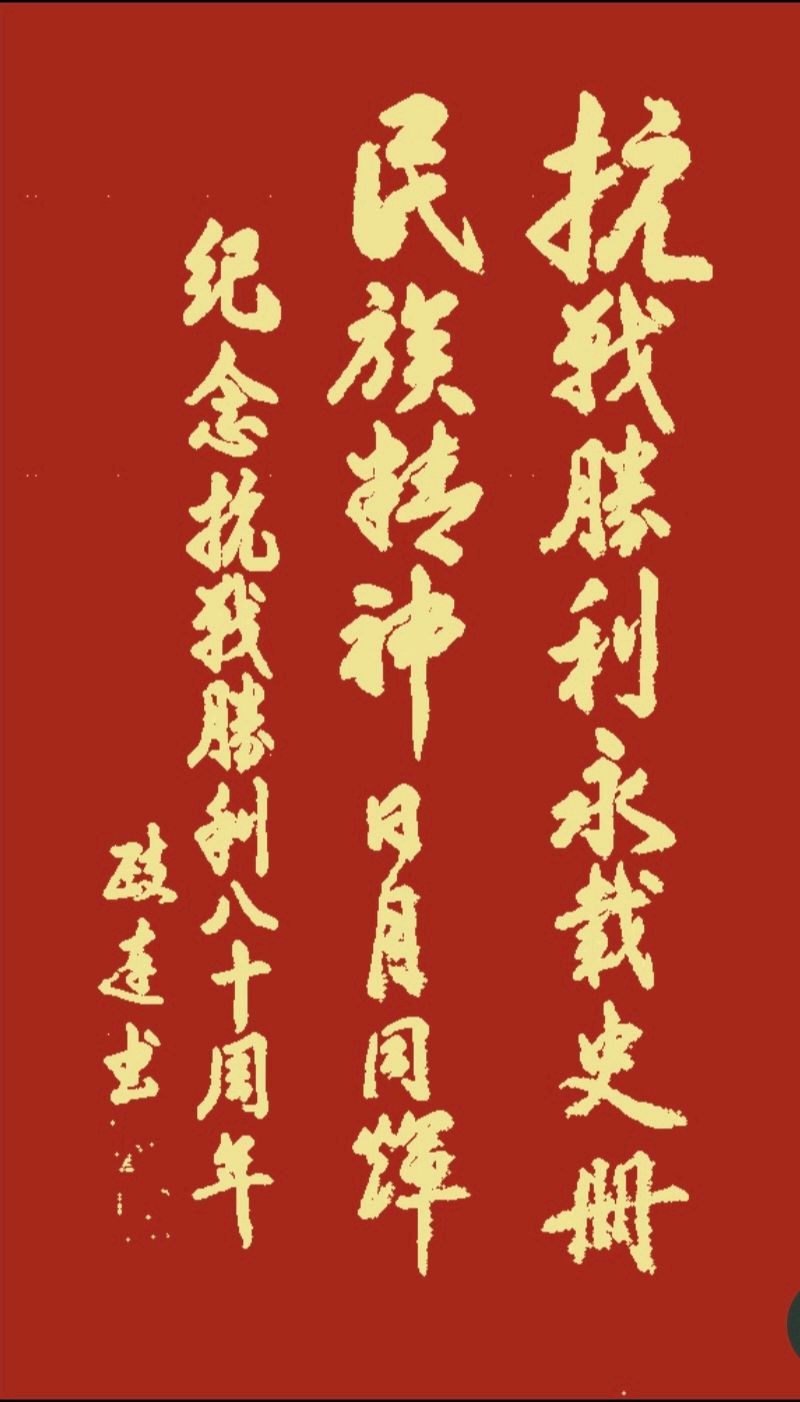 抗戰勝利永载史册
民族精神日月同輝
纪念抗战勝利八十周年
政达书